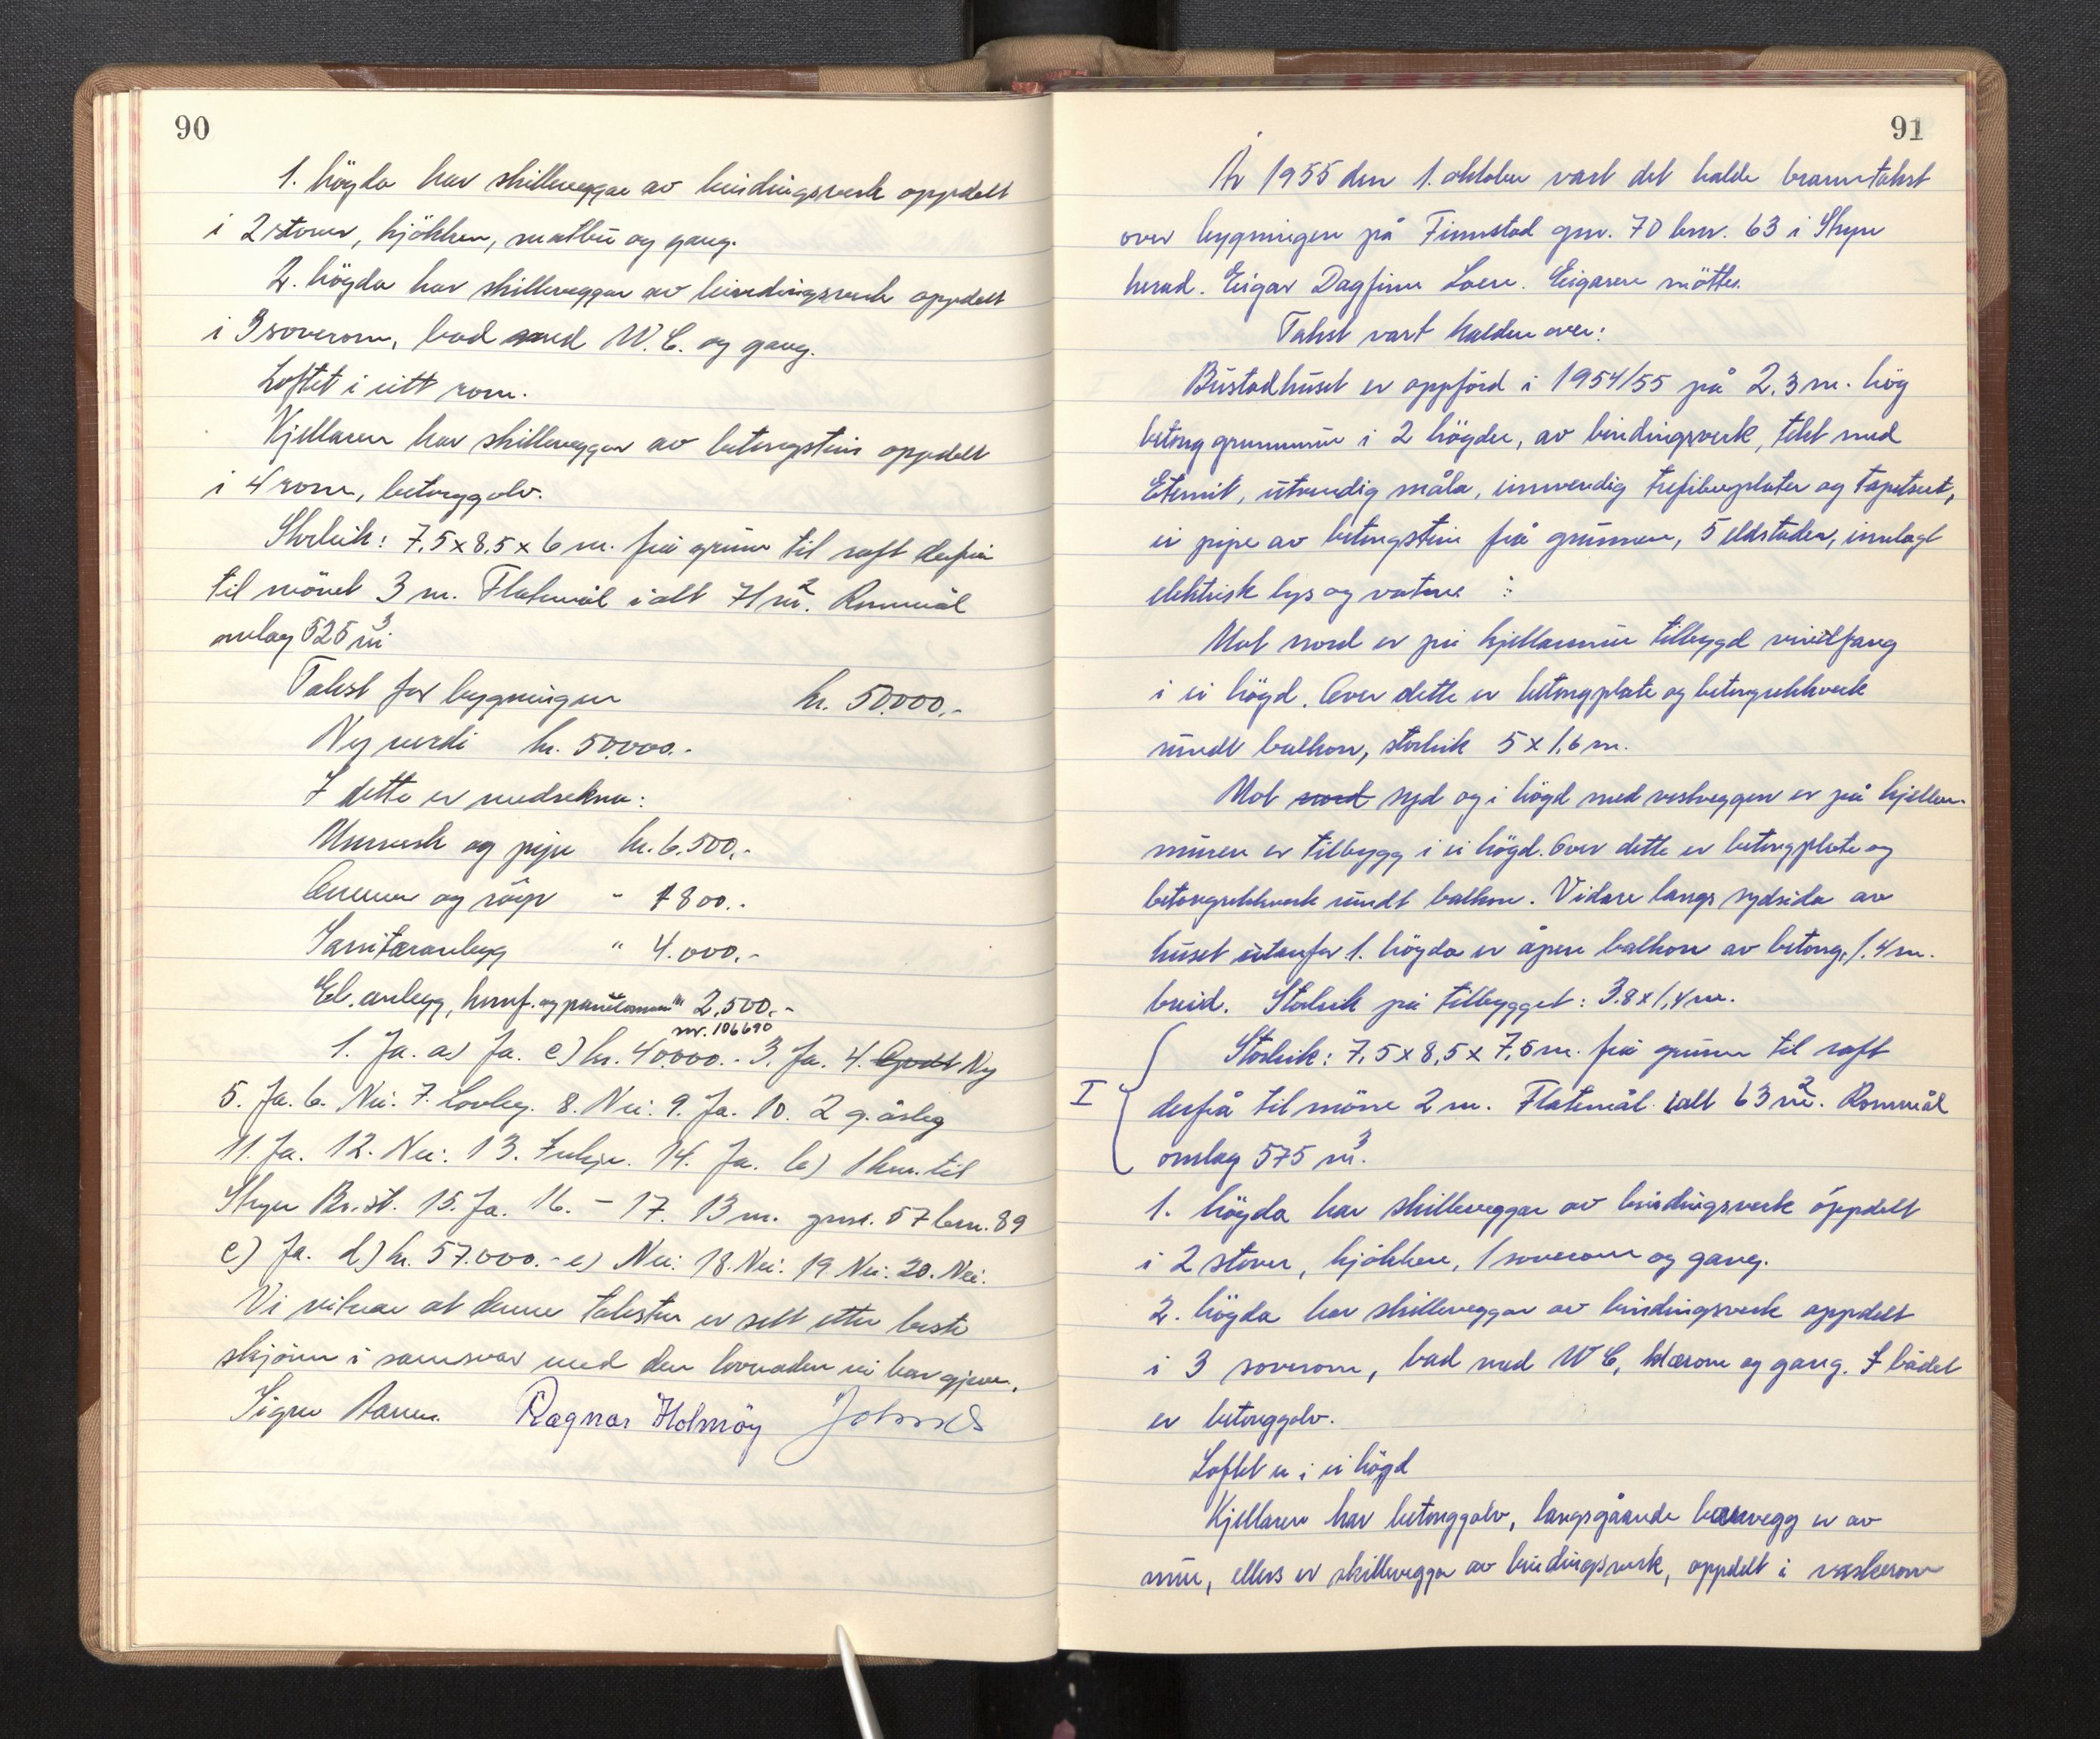 90
1. högda har skilleveggar av bindingsverk oppdelt
i 2 stover, kjökken, matbu og gang.
2. högda har skilleveggar av bindingsverk oppdelt
i 3 soverom, bad med W.C. og gang.
Loftet i eitt rom.
Kjellaren har skilleveggar av betongstein oppdelt
i 4 rom, betonggolv.
Storleik: 7.5 x 8.5 x 6 m. frå grunn til raft derfrå
til mönet 3 m. Flatemål ialt 71 m². Rommål
omlag 525 m³
Takst for bygningen kr. 50.000.-
Ny verdi kr. 50.000.-
I dette er medrekna:
Murverk og pipe kr. 6.500.-
Omnar og röyr " 1800.-
Sanitæranlegg " 4.000.-
El. anlegg, komf. og panelomnar " 2.500.-
nr. 106690
1. Ja. a) Ja. c) kr. 40.000.- 3. Ja. 4. Godt Ny
5. Ja. 6. Nei. 7. Lovleg. 8. Nei. 9. Ja. 10. 2 g. årleg
11. Ja. 12. Nei. 13. Inkje. 14. Ja. b) 1 km. til
Stryn Br.st. 15. Ja. 16. – 17. 13 m. gnr. 57 bnr. 89
c) Ja. d) kr. 57.000.- e) Nei. 18. Nei. 19. Nei. 20. Nei.
Vi vitnar at denne taksten er sett etter beste
skjönn i samsvar med den lovnaden vi har gjeve.
Ragnar Holmöy
91
År 1955 den 1. oktober vart det halde branntakst
over bygningen på Finnstad gnr. 70 bnr. 63 i Stryn
herad. Eigar Dagfinn Loen. Eigaren mötte.
Takst vart halden over:
Bustadhuset er oppförd i 1954/55 på 2.3 m. hög
betong grunnmur i 2 högder, av bindingsverk, tekt med
Eternit, utvendig måla, innvendig trefiberplater og tapetsert,
ei pipe av betongstein frå grunnen, 5 eldstader, innlagt
elektrisk lys og vatne :
Mot nord er på kjellarmur tilbygd vindfang
i ei högd. Over dette er betongplate og betongrekkverk
rundt balkon, storleik 5 x 1,6 m.
Mot nord syd og i högd med vestveggen er på kjellar-
muren er tilbygg i ei högd. Over dette er betongplate og
betongrekkverk rundt balkon. Vidare langs sydsida av
huset utanfor 1. högda er åpen balkon av betong, 1.4 m.
breid. Storleik på tilbygget: 3.8 x 1,4 m.
I Storleik: 7,5 x 8,5 x 7,5 m. frå grunn til raft
derfrå til möne 2 m. Flatemål ialt 63 m². Rommål
omlag 575 m³.
1. högda har skilleveggar av bindingsverk oppdelt
i 2 stover, kjökken, 1 soverom og gang.
2. högda har skilleveggar av bindingsverk oppdelt
i 3 soverom, bad med W C, klærom og gang. I badet
er betonggolv.
Loftet er i ei högd
Kjellaren har betonggolv, langsgåande bærevegg er av
mur, ellers er skillevegger av bindingsverk, oppdelt i vaskerom